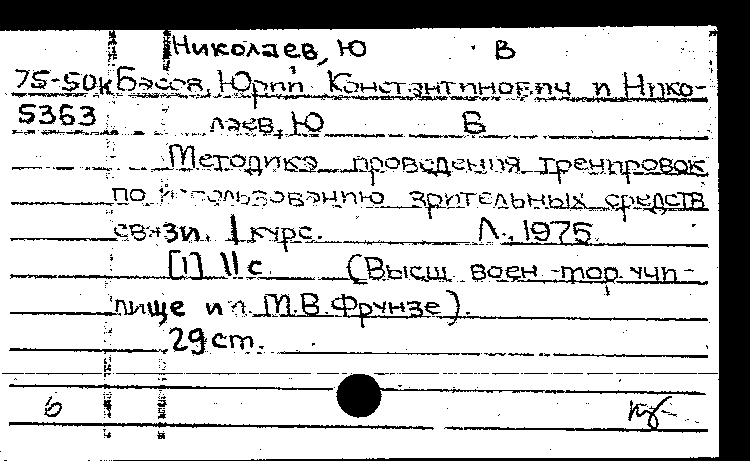 Николаев, Ю В
75-50к Басов, Юрий Константинович и Нико-
5363 лаев, Ю В
Методика проведения тренировок
по использованию зрительных средств
связи. I курс. Л., 1975.
[1] 11 с. (Высш. воен.-мор. учи-
лище им. М.В. Фрунзе).
29 cm.
6